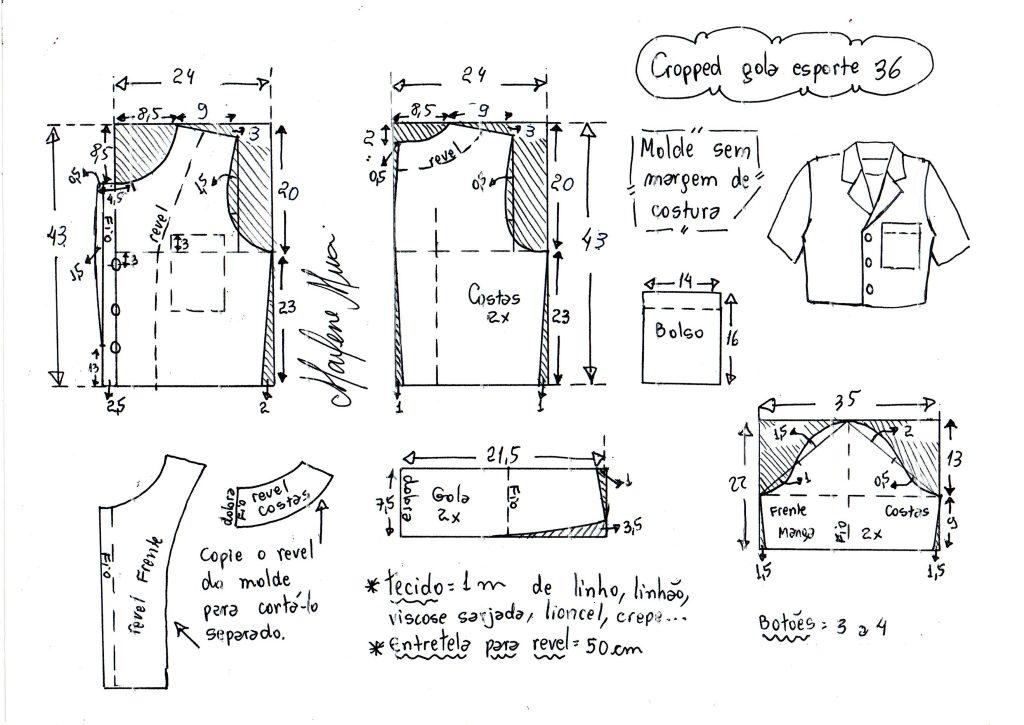 Cropped gola esporte 36
24
8,5
9
3
43
8,5
0,5
4,5
Fio
revel
1,5
20
3
3
1,5
23
13
2,5
2
Marlene Mukai
24
8,5
9
3
2
0,5
revel
0,5
20
43
Costas
2x
23
1
1
"Molde sem
margem de
costura"
14
Bolso
16
35
1,5
2
13
22
1
0,5
Frente
Costas
Manga
Fio
2x
9
1,5
1,5
Botões = 3 a 4
21,5
7,5
dobra
Gola
2x
Fio
1
3,5
Fio
revel Frente
dobra
Fio
revel
costas
Copie o revel
do molde
para cortá-lo
separado.
* tecido = 1 m de linho, linhão,
viscose sarjada, lioncel, crepe...
* Entretela para revel = 50cm